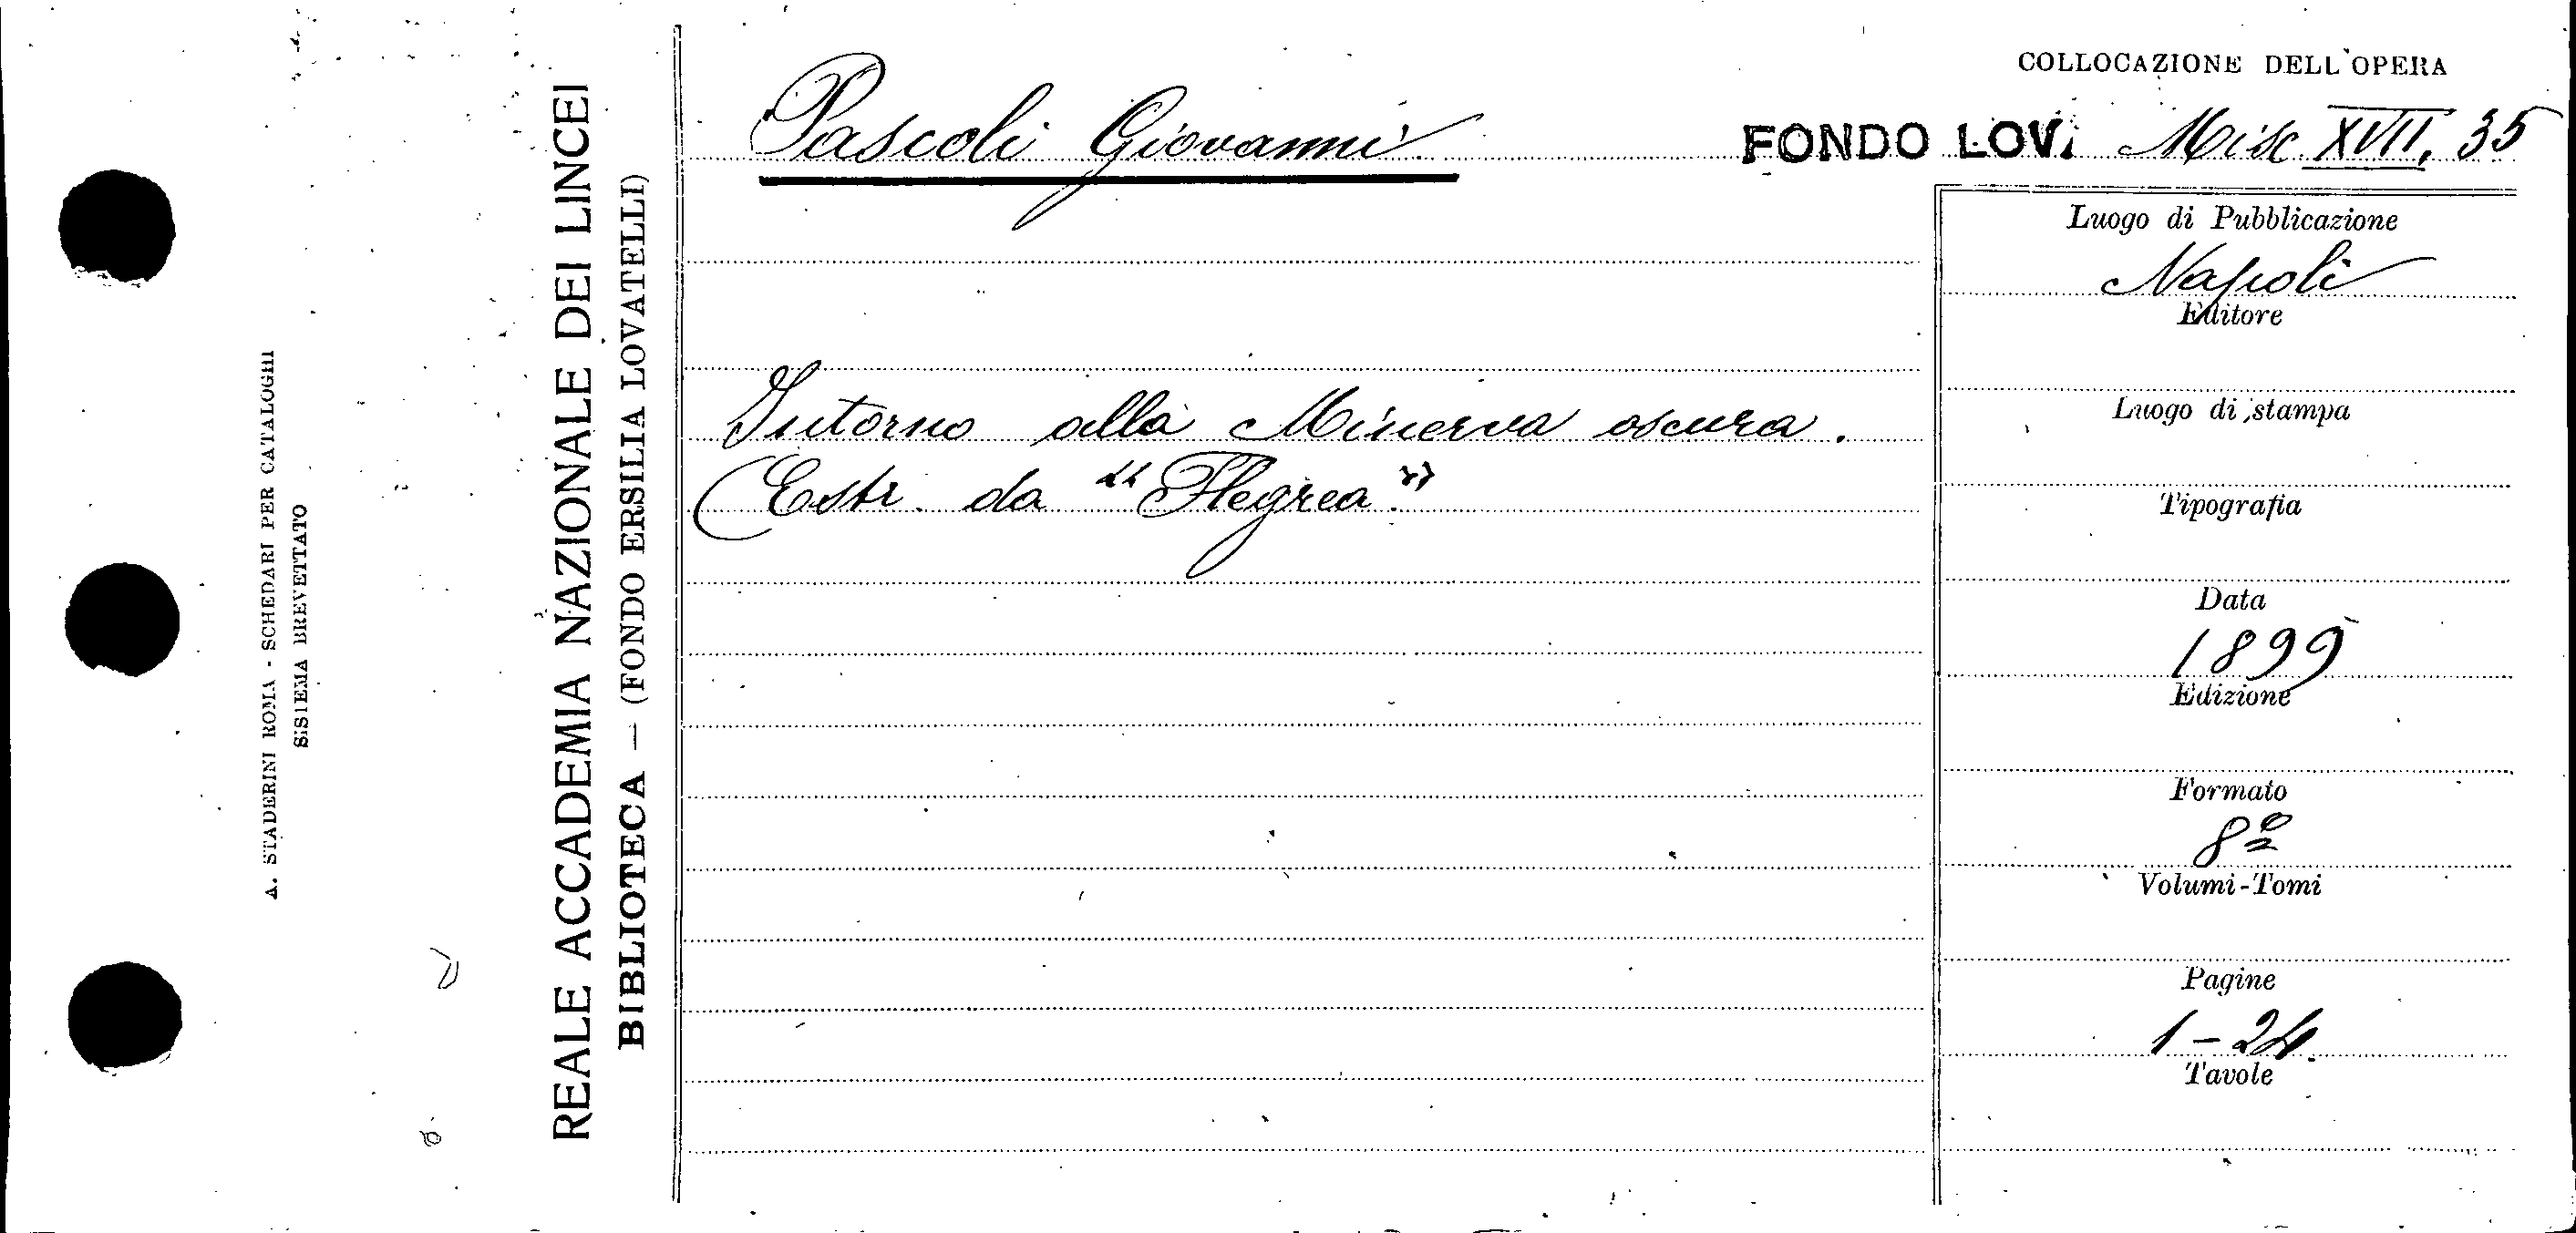 A. STADERINI ROMA - SCHEDARI PER CATALOGHI
SISTEMA BREVETTATO
REALE ACCADEMIA NAZIONALE DEI LINCEI
BIBLIOTECA — (FONDO ERSILIA LOVATELLI)
Pascoli Giovanni
Intorno alla Minerva oscura.
(Estr. da "Flegrea"
COLLOCAZIONE DELL'OPERA
FONDO LOV. Misc. XVII, 35
Luogo di Pubblicazione
Napoli
Editore
Luogo di stampa
Tipografia
Data
1899
Edizione
Formato
8º
Volumi-Tomi
Pagine
1-24.
Tavole